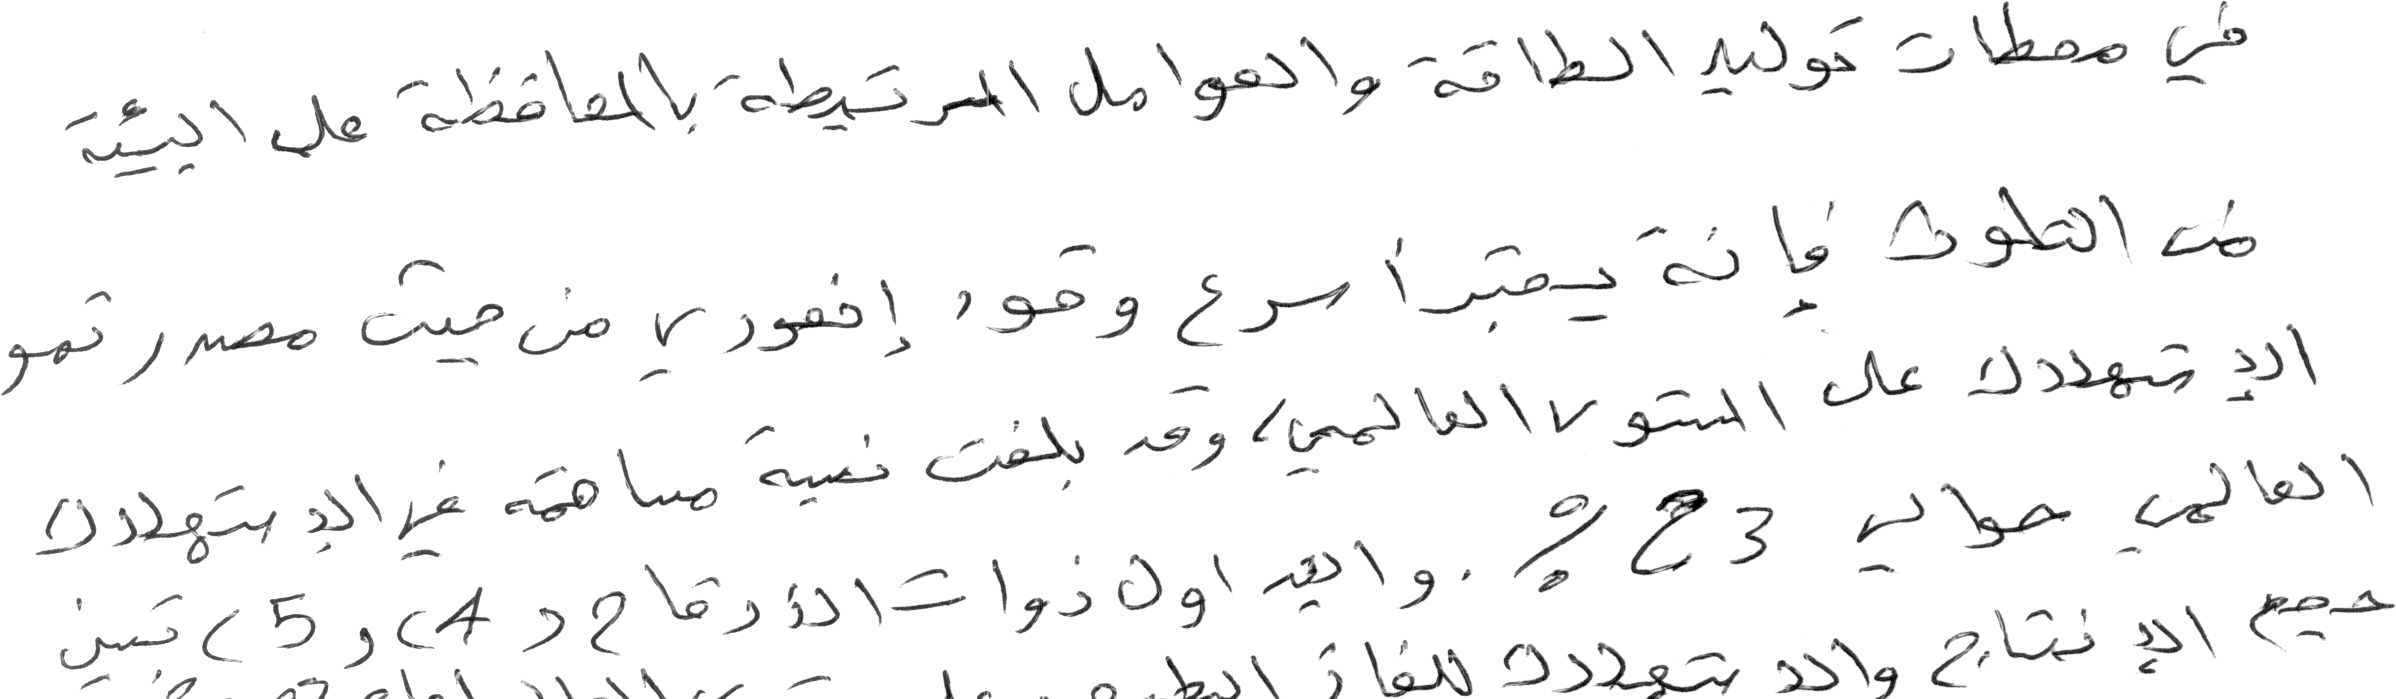 في محطات توليد الطاقة والعوامل المرتبطة بالمحافظة على البيئة
من التلوث فإنة يعتبر أسرع وقود إحفوري من حيث مصدر نمو
الإستهلاك على المستوى العالمي، وقد بلغت نسبة مساهمته في الإستهلاك
العالمي حوالي 23 %. والجداول ذوات الأرقام (4) و(5) تبين
حجم الإنتاج والاستهلاك للغاز